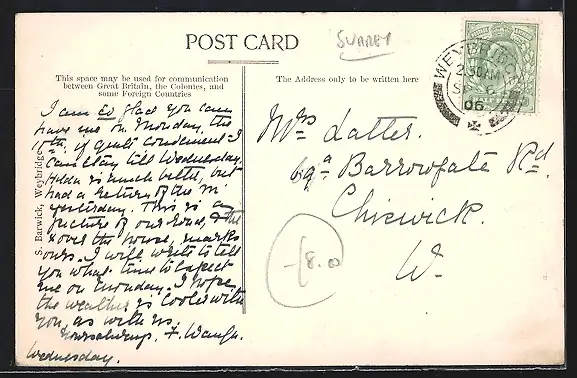 POST CARD
SURREY
This space may be used for communication
between Great Britain, the Colonies, and
some Foreign Countries
The Address only to be written here
S. Barwick, Weybridge
I am so glad you can
have me on Monday, the
10th, if quite convenient I
can stay till Wednesday.
Hilda is much better, but
had a return of the
yesterday. This is a
picture of our road, & the
x over the house, marks
ours. I will write to tell
you what time to expect
me on Monday. I hope
the weather is cooler with
you, as with us.
Yours always, F. Waugh.
Wednesday.
Mrs Latter.
69a Barrowgate Rd.
Chiswick.
W.
£8.00
WEYBRIDGE
2.30AM
SP
06